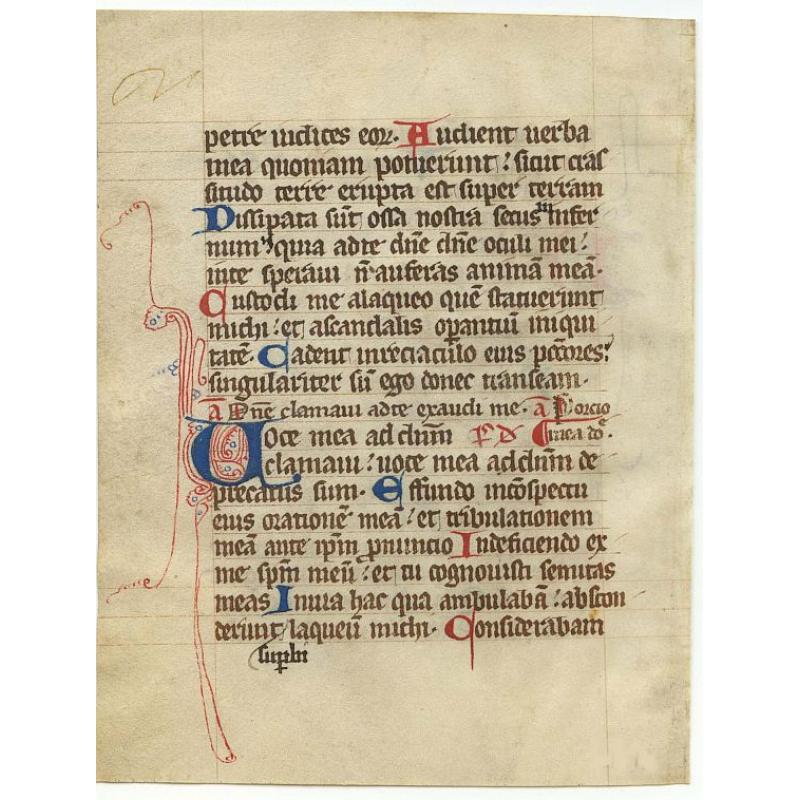 petre iudices eoꝝ. Audient uerba
mea quoniam potuerunt: sicut cras
situdo terre erupta est super terram
Dissipata sūt ossa nostra secus infer
num quia adte dn̄e dn̄e oculi mei:
inte speraui n̄ auferas animā meā.
Custodi me alaqueo quē statuerunt
michi: et ascandalis oꝑantiū iniqui
tatē. Cadent inreciaculo eius pc̄cōres:
singulariter sū ego donec transeam.
ā Dn̄e clamaui adte exaudi me. ā Porcio
Uoce mea ad dn̄m pſ dd mea dō.
clamaui: uoce mea addn̄m de
precatus sum. Effundo incōspectu
eius orationē meā: et tribulationem
meā ante ip̄m ꝓnuncio Indeficiendo ex
me sp̄m meū: et tu cognouisti semitas
meas Inuia hac qua ambulabā: abscon
derunt laqueū michi. Considerabam
suꝑbi